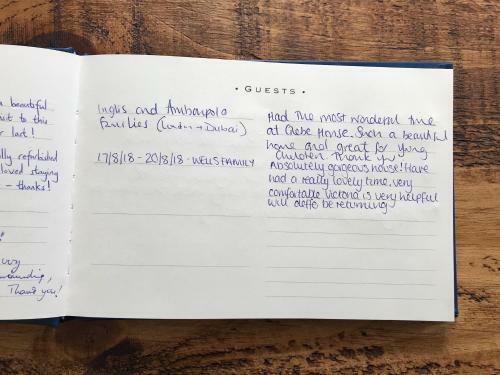 a beautiful
sit to this
r last!
lly refurbished
loved staying
- thanks!
Thank you!
• GUESTS •
Inglis and Ambarpolo
families (London + Dubai)
17/8/18 - 20/8/18 - WELLS FAMILY
Had The most wonderful time
at Glebe House. Such a beautiful
home and great for young
Children Thank you
Absolutely gorgeous house! Have
had a really lovely time, very
comfortable victoria is very helpful
will deffo be returning